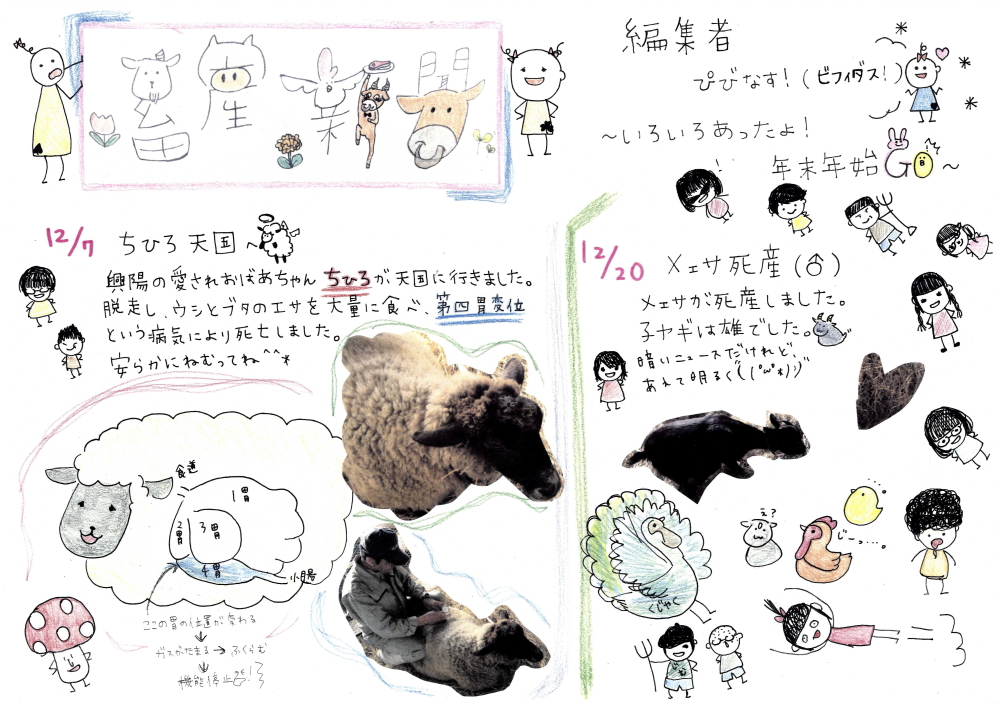 畜産新聞
編集者
ぴびなす！(ビフィダス！)
～いろいろあったよ！
年末年始GO～
12/7 ちひろ天国～
興陽の愛されおばあちゃん ちひろが天国に行きました。
脱走し、ウシとブタのエサを大量に食べ、第四胃変位
という病気により死亡しました。
安らかにねむってね^^*
食道
1胃
2胃
3胃
4胃
小腸
ここの胃の位置が変わる
ガスがたまる→ふくらむ
機能停止
12/20 メェサ死産(♂)
メェサが死産しました。
子ヤギは雄でした。
暗いニュースだけれど、
あえて明るく
え？
じーっ…。
くじゃく